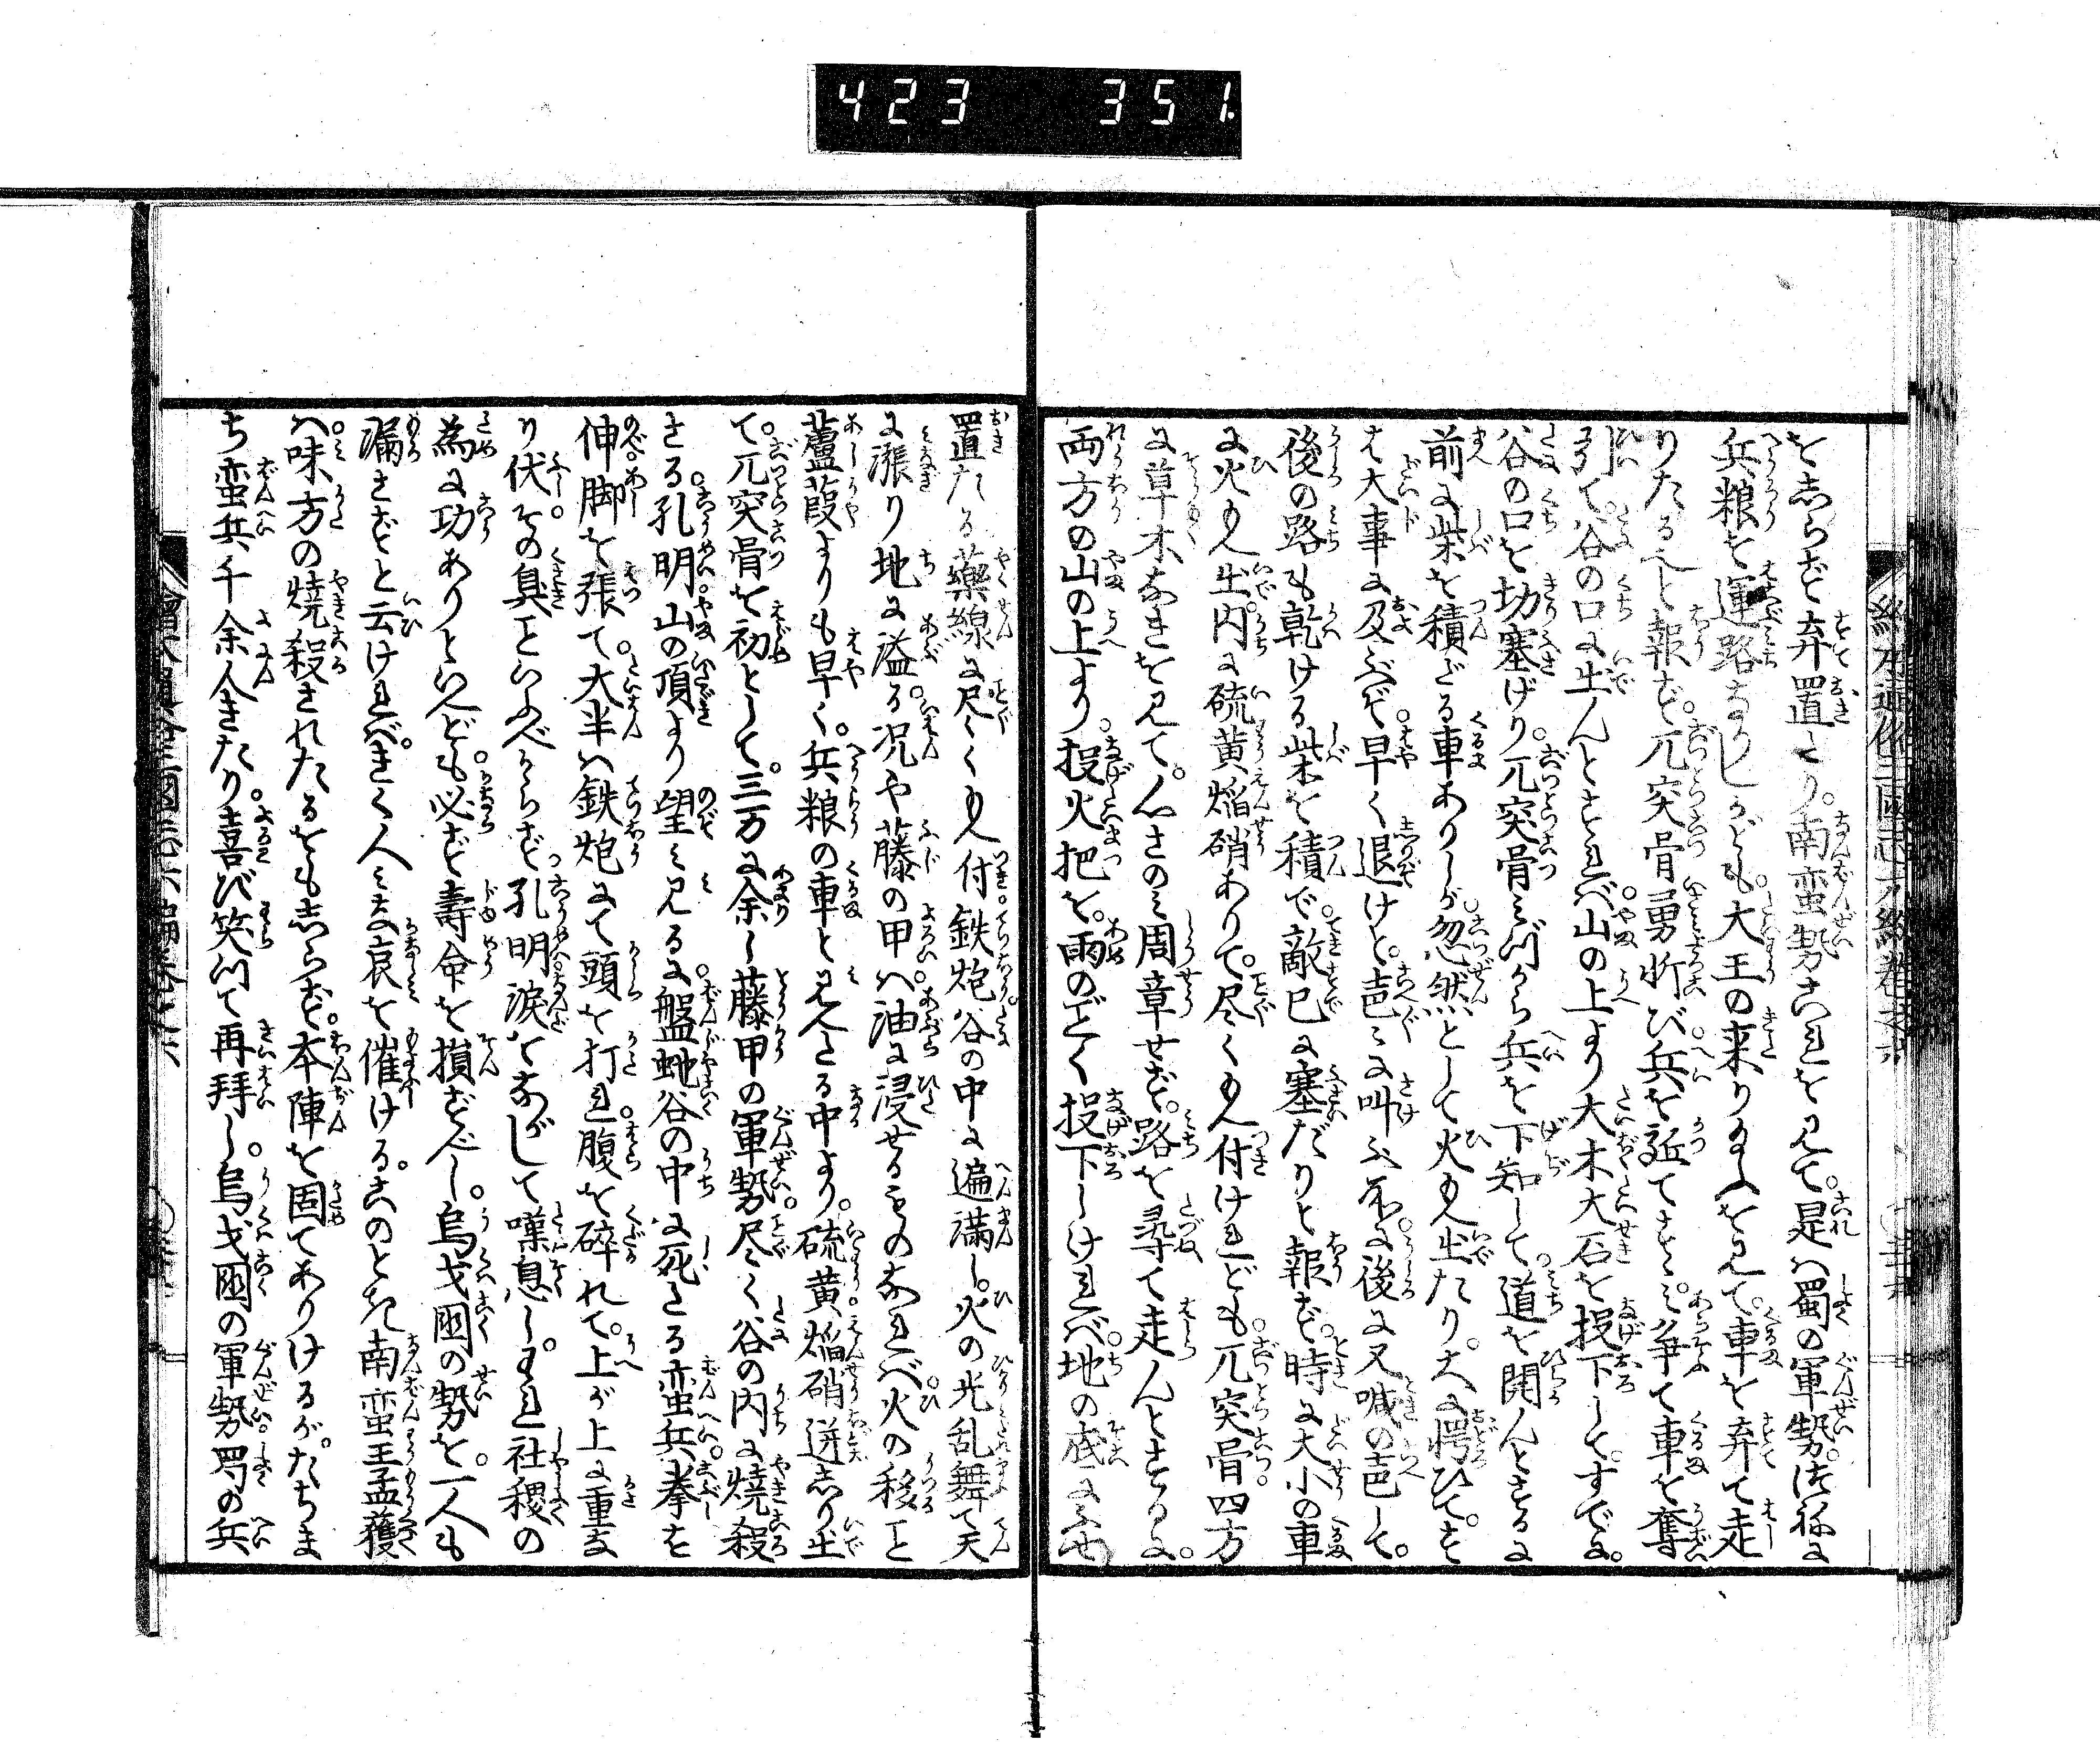 423 351
をしらず弃置たり。南蛮勢これを見て。是ハ蜀の軍勢。つねに
兵粮を運路なりしかども。大王の来り給ふを見て。車を弃て走
りたるべしと報ず。兀突骨勇斫び兵を進てすゝみ。争て車を奪
引て。谷の口に出んとすれバ。山の上より大木大石を投下して。すでに。
谷の口を切塞げり。兀突骨ミづから兵を下知して。道を開んとするに
前に柴を積ざる車ありしが。忽然として火もえ出たり。大に愕ひて。す
ハ大事に及ぶぞ。早く退けと。声〻に叫ぶ所に。後に又喊の声して。
後の路も乾ける柴を積で。敵已に塞だりと報ず。時に大小の車
に火もえ出。内に硫黄焔硝ありて。尽くもえ付けれども。兀突骨四方
に草木なきを見て。心さのミ周章せず。路を尋て走んとするに。
両方の山の上より。投火把を。雨のごとく投下しけれバ。地の底にふせ
置たる藥線に尽くもえ付。鉄炮谷の中に遍満し。火の光乱舞て天
に漲り地に溢る。況や藤の甲ハ。油に浸せるものなれバ火の移こと
蘆葭よりも早く。兵粮の車と見えたる中より。硫黄焔硝迸しり出
て。兀突骨を初として。三万に余し藤甲の軍勢。尽く谷の内に燒殺
さる。孔明。山の頂より望ミ見るに。盤蛇谷の中に死たる蛮兵。拳を
伸脚を張て。大半ハ鉄炮にて頭を打れ。腹を碎れて。上が上に重な
り伏。その臭こといふべからず。孔明涙をながして嘆息し。われ社稷の
為に功ありといへども。必ず壽命を損ずべし。烏戈國の勢を。一人も
漏さずと云けれバ。きく人ミな哀を催ける。このとき南蛮王孟獲
ハ。味方の燒殺されたるをもしらず。本陣を固てありけるが。たちま
ち蛮兵千余人きたり。喜び笑つて再拜し。烏戈國の軍勢蜀の兵